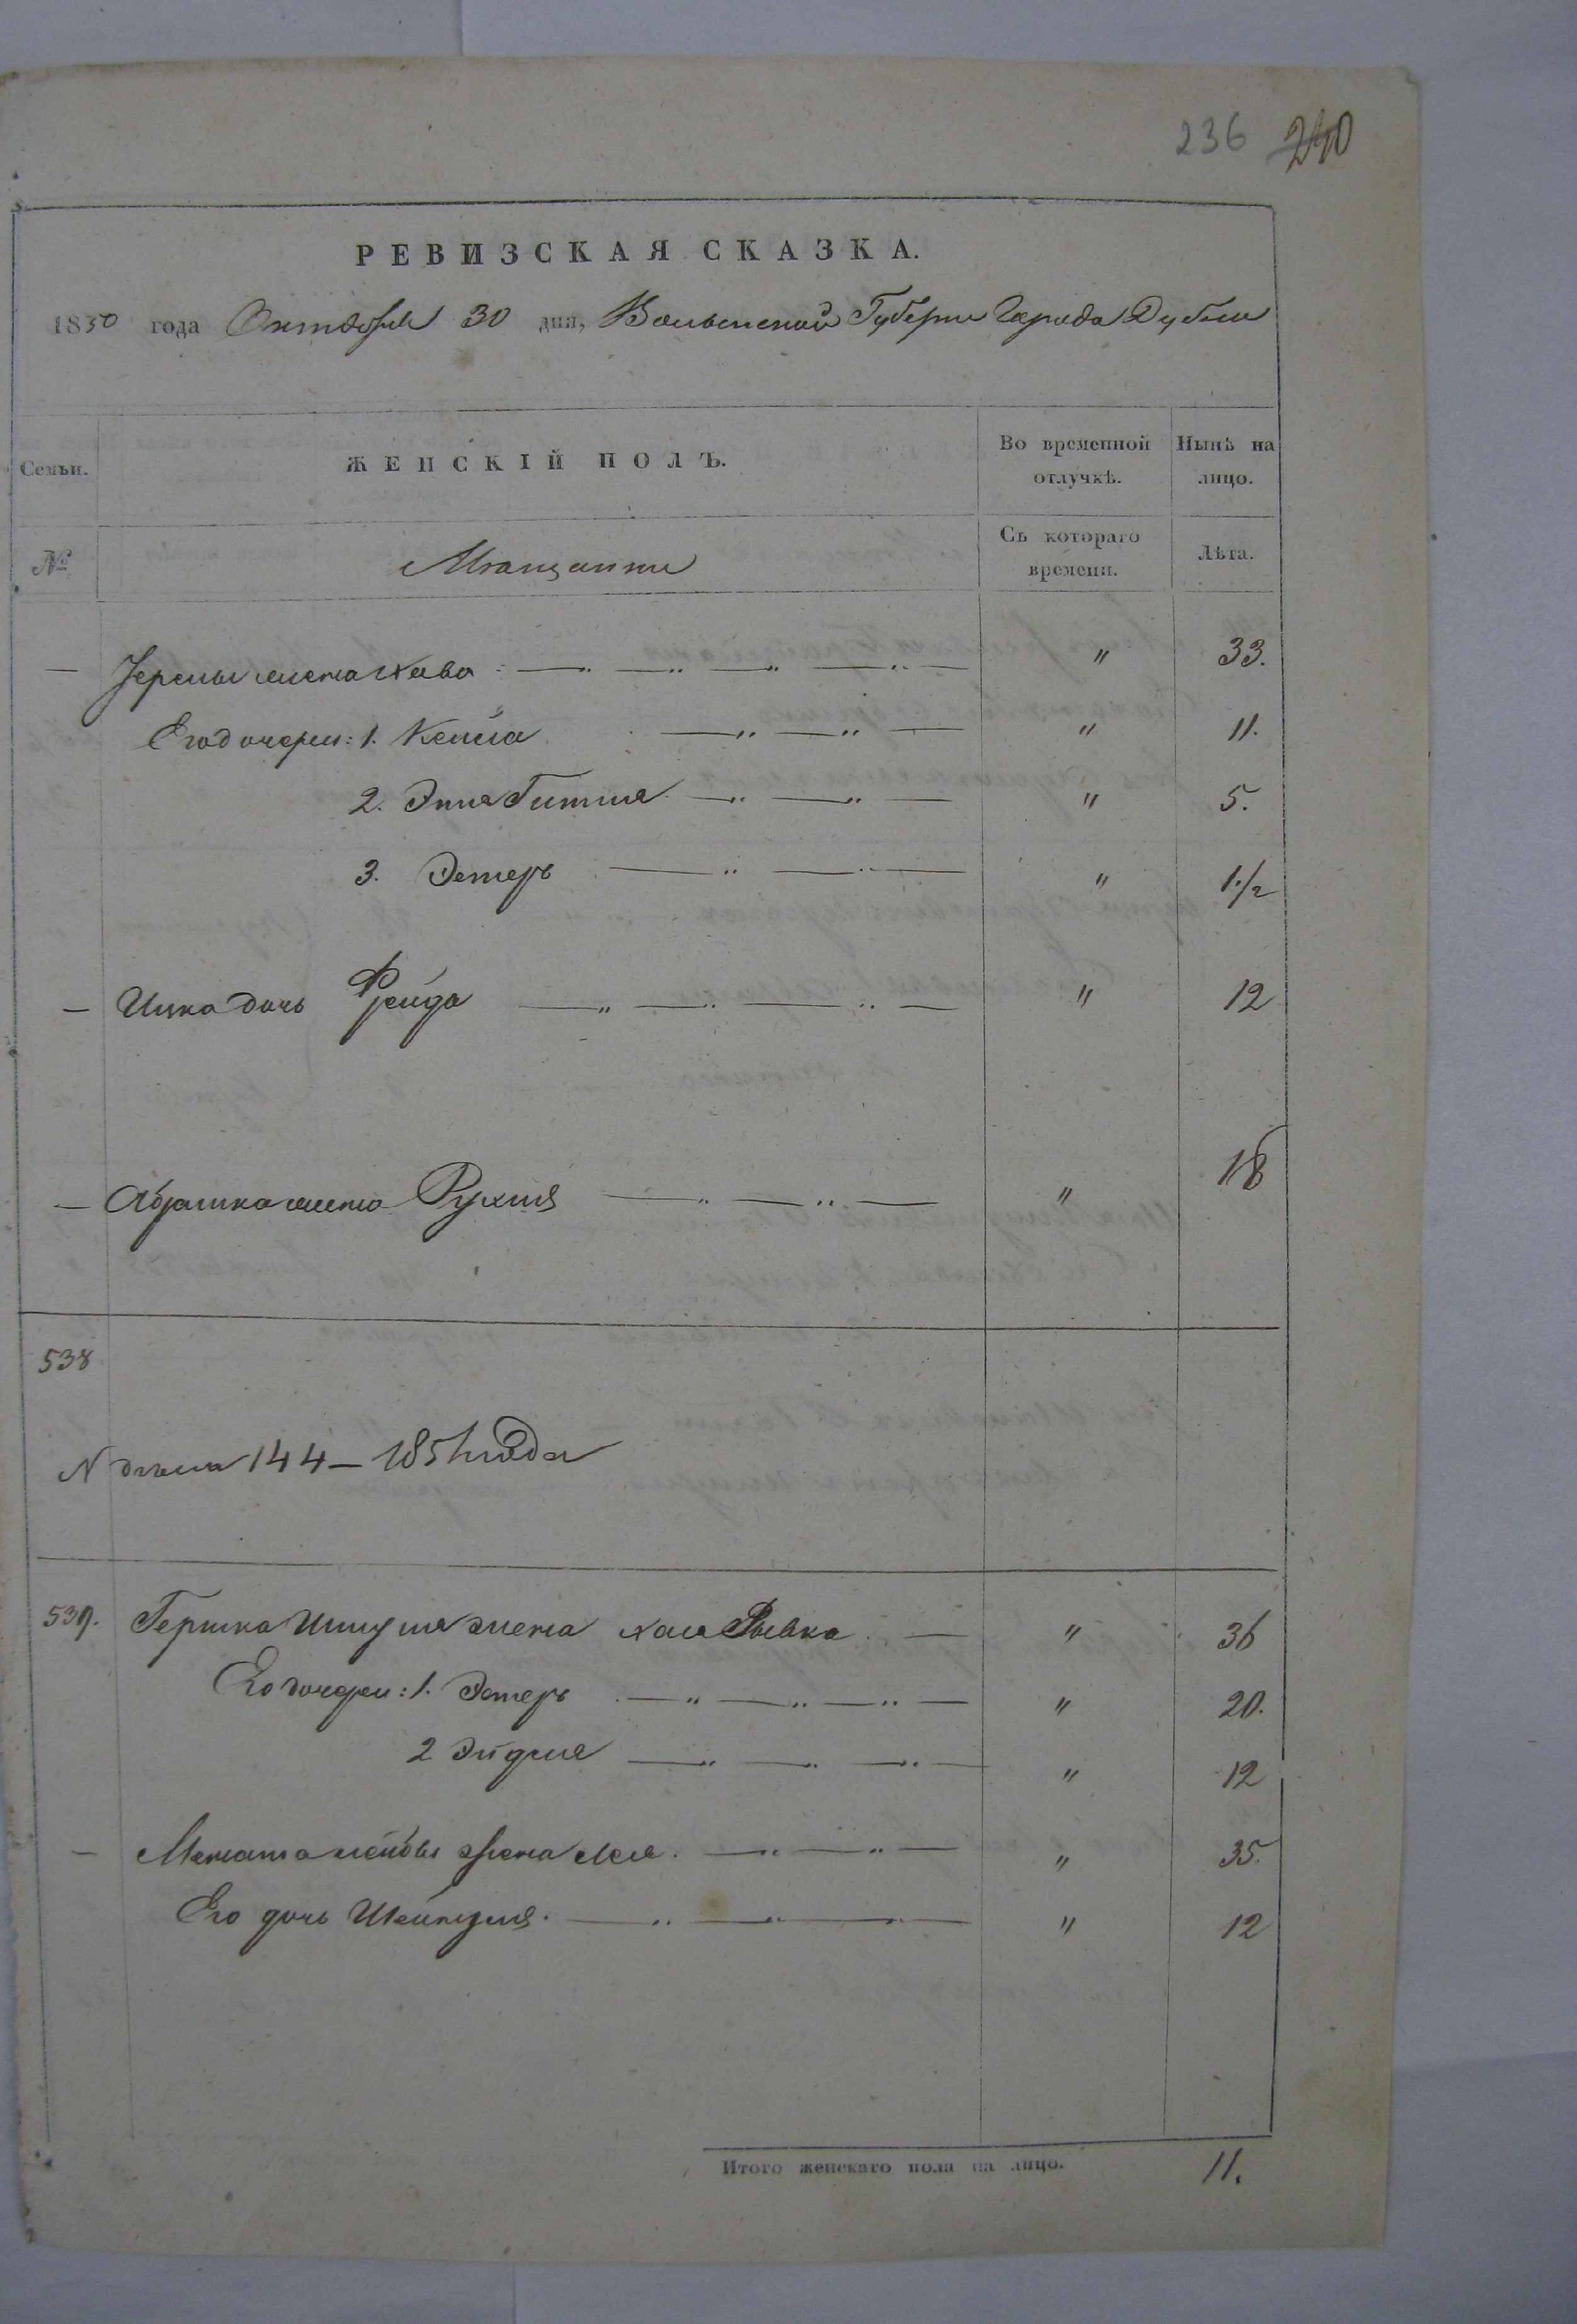 236 240
РЕВИЗСКАЯ СКАЗКА.
1850 года Октября 30 дня, Волынской Губерни Города Дубна
Семьи. ЖЕНСКІЙ ПОЛЪ. Во временной отлучкѣ. Нынѣ на лицо.
№ Мѣщанки Съ котораго времени. Лѣта.
— жена Хава " 33.
Его дочери: 1. Кейла " 11.
2. Эння Гитля " 5.
3. Эстеръ " 1 1/2
— Ицка дочь Фрейда " 12
— Абрашка жена Рухля " 18
538
N дѣла 144 — года
539. Гершка жена Хая Рывка " 36
Его дочери: 1. Эстеръ " 20.
2 Эйдля " 12
— жена Лея " 35.
Его дочь Шейндля " 12
Итого женскаго пола на лицо. 11.